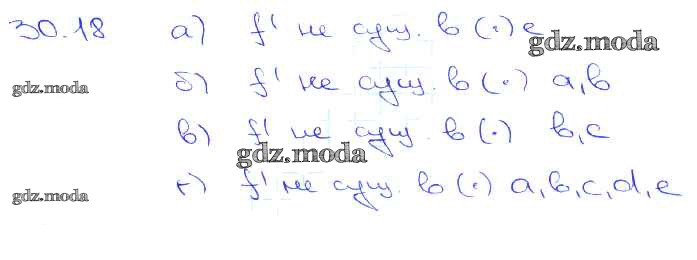 30.18 а) f' не сущ. в (·) e
gdz.moda
gdz.moda б) f' не сущ. в (·) a, b
в) f' не сущ. в (·) b, c
gdz.moda
gdz.moda г) f' не сущ. в (·) a, b, c, d, e